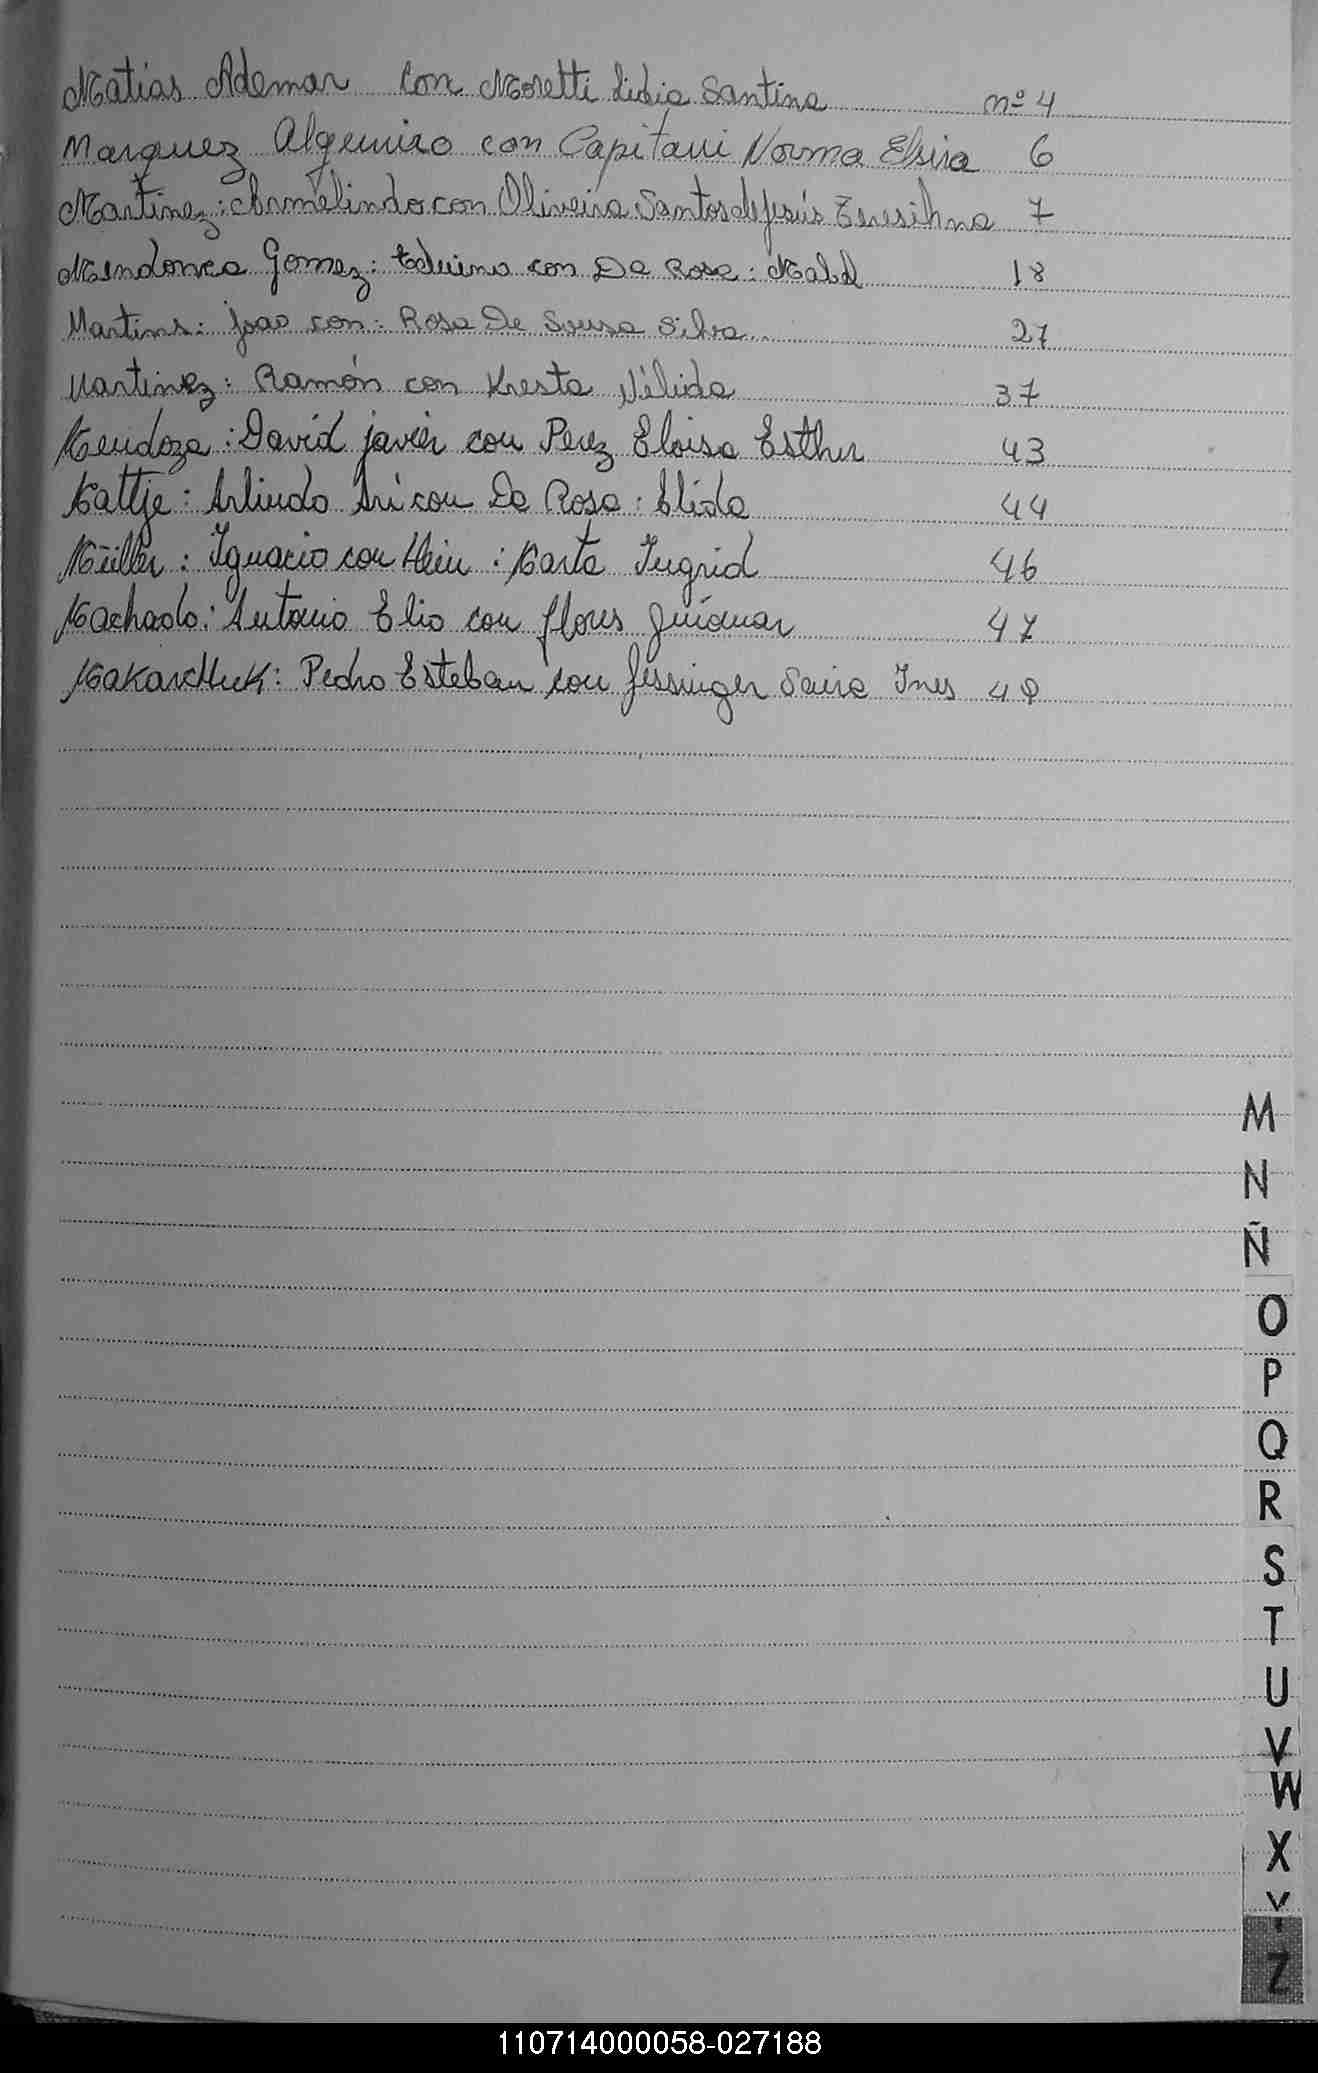 Matias Ademar con Moretti Lidia Santina nº 4
Marquez Algemiro con Capitani Norma Elsira 6
Martinez: Armelindo con Oliveira Santos de Jesús Teresihna 7
Mendonca Gomez: Eduino con Da Rosa: Mabel 18
Martins: Joao con: Rosa De Sousa Silva 27
Martinez: Ramón con Kresta Nélida 37
Mendoza: David javier con Perez Eloisa Esther 43
Mattje: Arlindo Ari con Da Rosa: Elida 44
Müller: Ignacio con Hein: Marta Ingrid 46
Machado: Antonio Elio con flores Juiamar 47
Makarchuk: Pedro Esteban con Jessinger Saira Ines
M
N
Ñ
O
P
Q
R
S
T
U
V
W
X
Y
Z
110714000058-027188